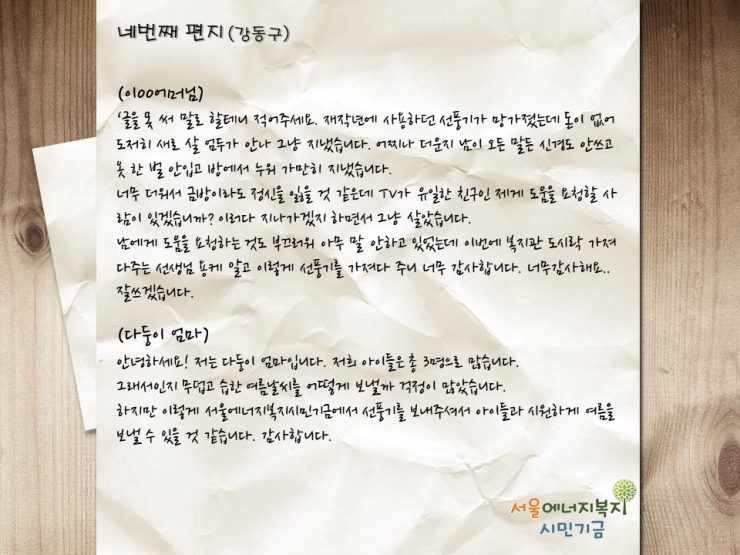 네번째 편지 (강동구)
(이00어머님)
'글을 못 써 말로 할테니 적어주세요. 재작년에 사용하던 선풍기가 망가졌는데 돈이 없어
도저히 새로 살 엄두가 안나 그냥 지냈습니다. 어찌나 더운지 남이 오든 말든 신경도 안쓰고
옷 한 벌 안입고 방에서 누워 가만히 지냈습니다.
너무 더워서 금방이라도 정신을 잃을 것 같은데 TV가 유일한 친구인 제게 도움을 요청할 사
람이 있겠습니까? 이러다 지나가겠지 하면서 그냥 살았습니다.
남에게 도움을 요청하는 것도 부끄러워 아무 말 안하고 있었는데 이번에 복지관 도시락 가져
다주는 선생님 용케 알고 이렇게 선풍기를 가져다 주니 너무 감사합니다. 너무감사해요..
잘쓰겠습니다.
(다둥이 엄마)
안녕하세요! 저는 다둥이 엄마입니다. 저희 아이들은 총 3명으로 많습니다.
그래서인지 무덥고 습한 여름날씨를 어떻게 보낼까 걱정이 많았습니다.
하지만 이렇게 서울에너지복지시민기금에서 선풍기를 보내주셔서 아이들과 시원하게 여름을
보낼 수 있을 것 같습니다. 감사합니다.
서울에너지복지
시민기금